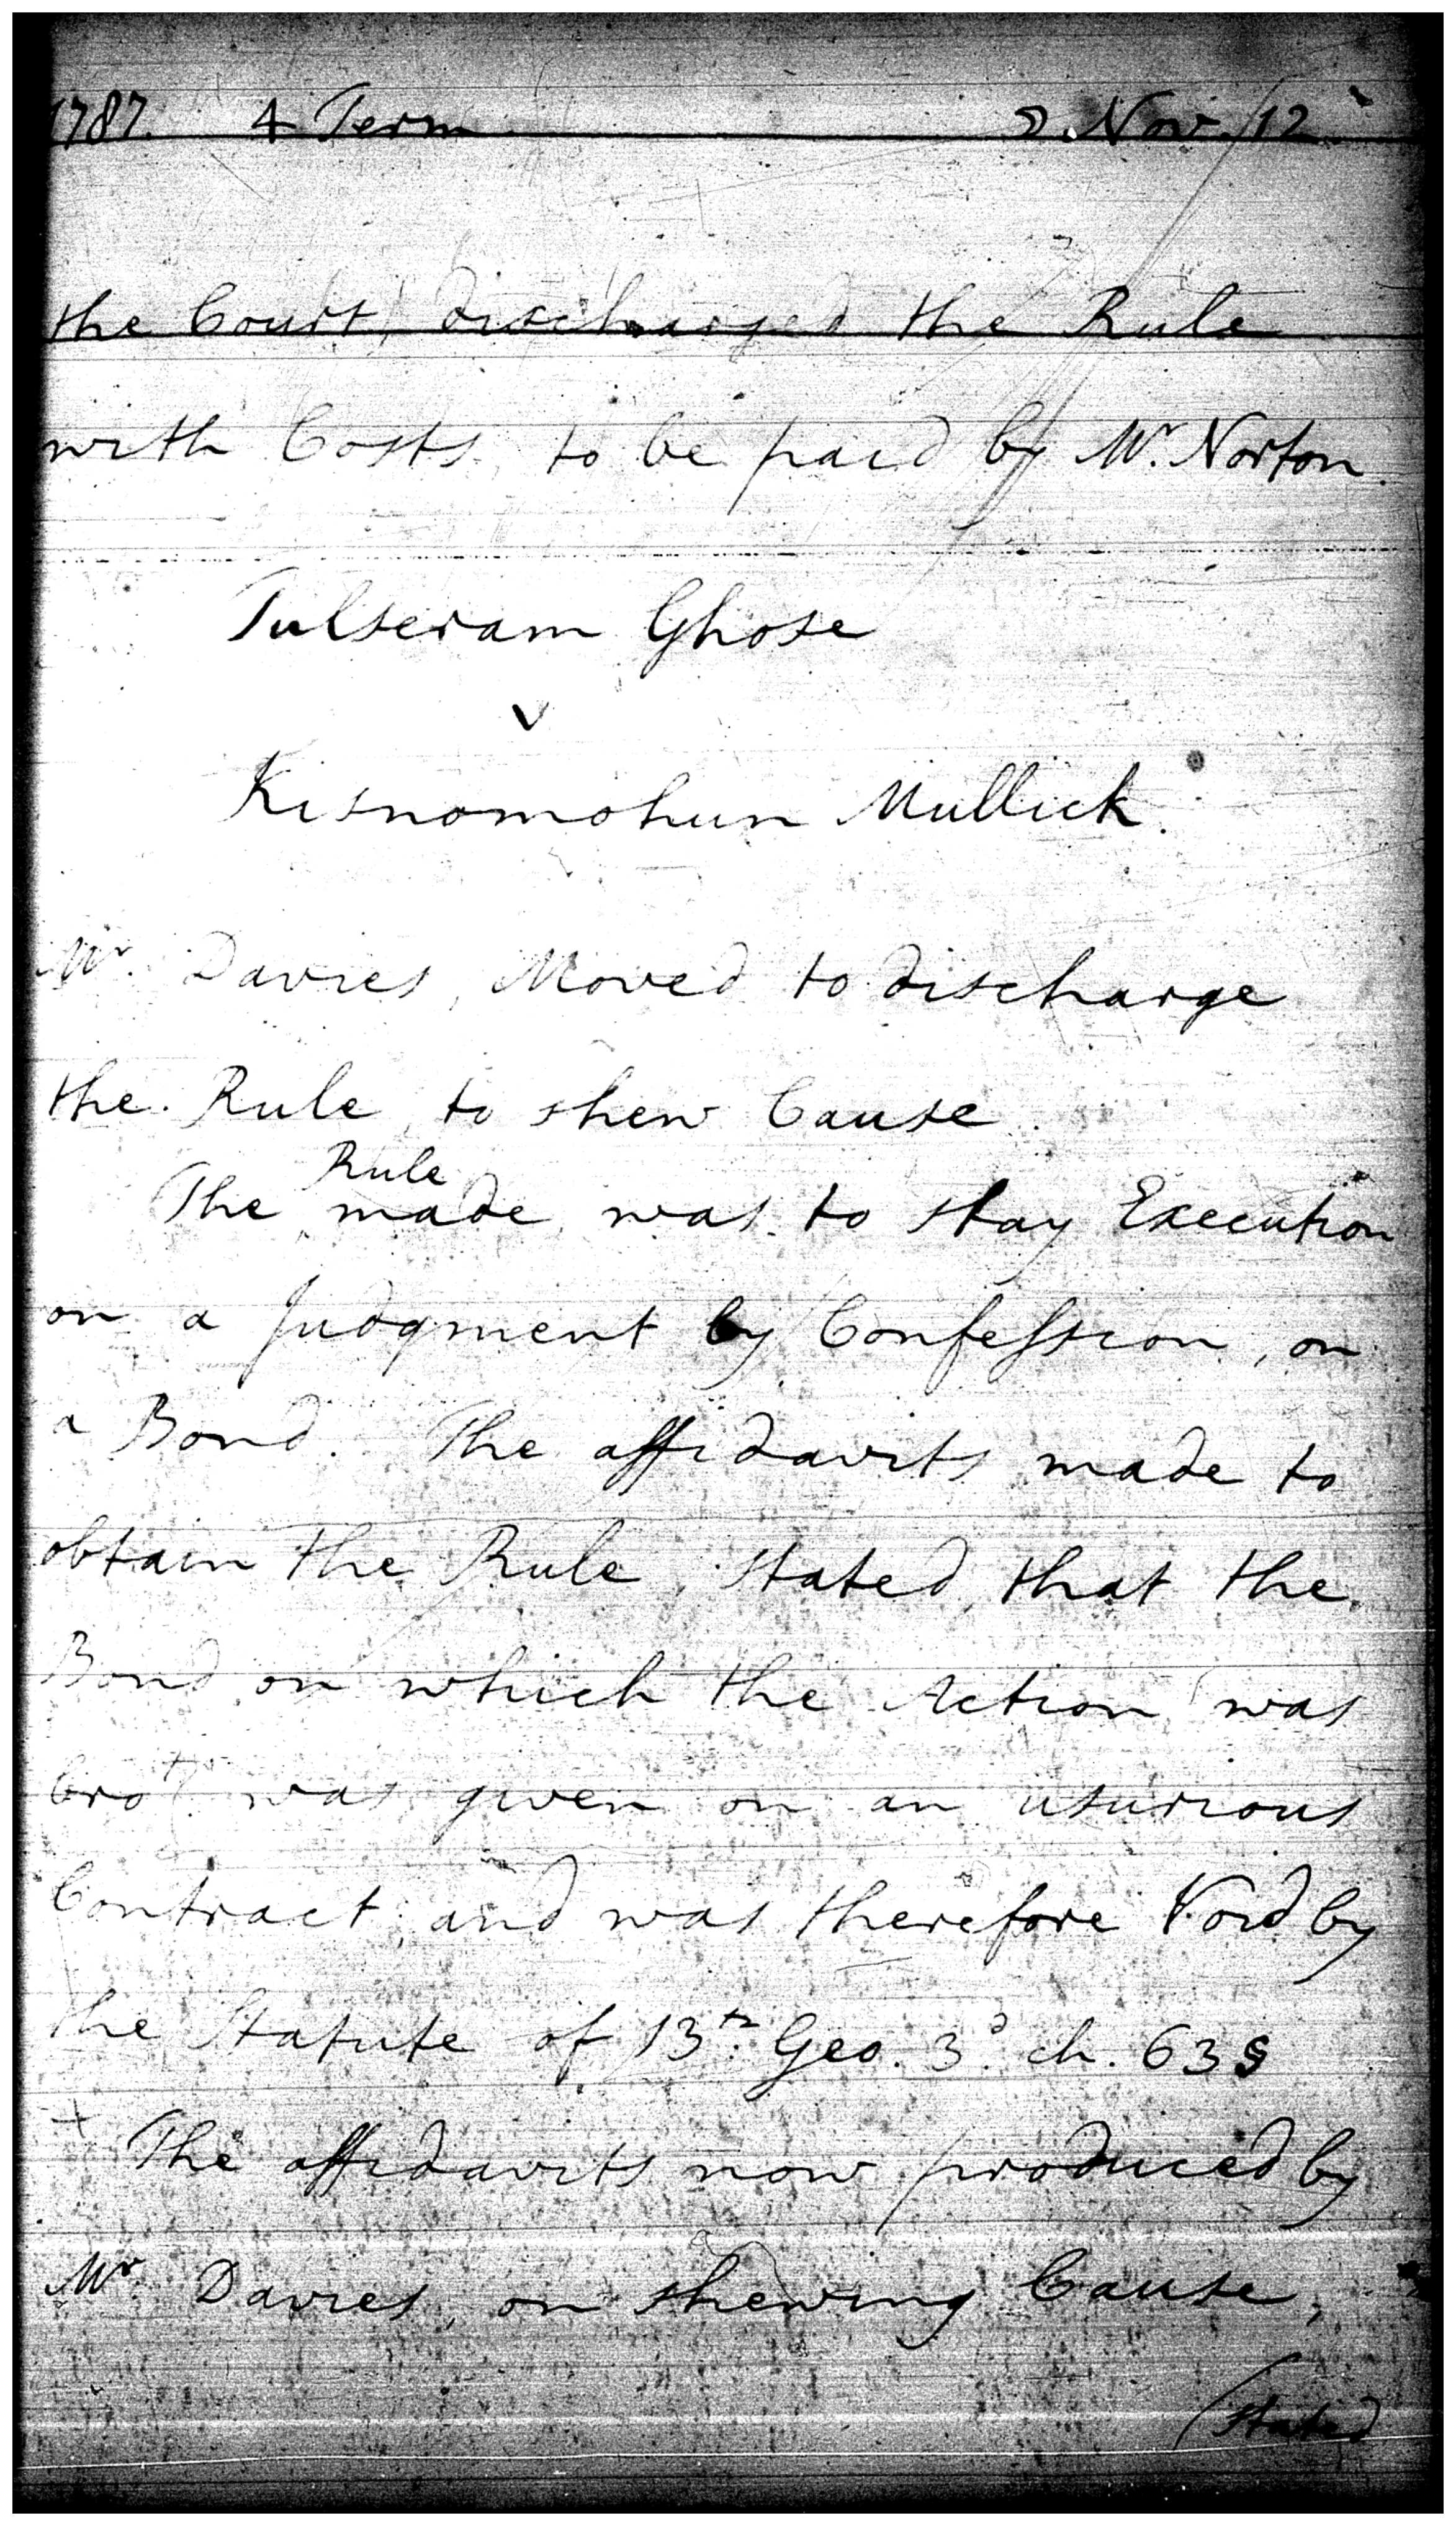 1787. 4 Term Nov. 12
the Court, discharged the Rule
with Costs, to be paid by Mr. Norton.
Tulseram Ghose
v
Kisnomohun Mullick.
Mr. Davies, Moved to discharge
the Rule, to shew Cause.
Rule
The made, was to stay Execution
on a Judgment by Confession, on
a Bond. The affidavits made to
obtain the Rule, stated, that the
Bond on which the Action was
bro't was given on an usurious
Contract, and was therefore Void by
the Statute of 13th Geo. 3d ch. 63 s
The affidavits now produced by
Mr. Davies, on shewing Cause,
(stated